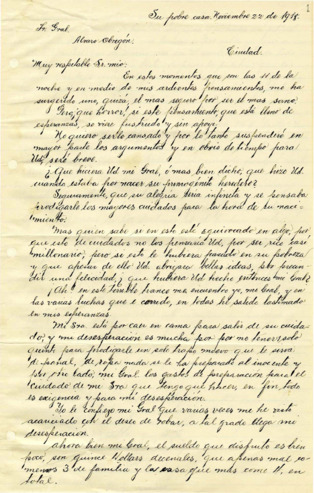 Su pobre casa. Noviembre 22 de 1918.
Sr. Gral.
Alvaro Obregón;
Ciudad.
Muy respetable Sr. mio;
En estos momentos que son las 11 de la
noche y en medio de mis ardientes pensamientos, me ha
surgido uno, quizá el mas seguro por ser el mas sano.
Pero, que horror! si este pensamiento que está lleno de
esperanzas, se viera frustrado y sin apoyo.
No quiero serle cansado y por lo tanto suspendiré en
mayor parte los argumentos y en obvio de tiempo para
Ud. seré breve.
¿Que hiciera Ud. mi Gral. ó mas bien dicho, que hizo Ud.
cuando estaba por nacer su primogénito heredero?
Seguramente que su alegria era infinita y se pensaba
los mayores cuidados para la hora de su naci-
miento.
Mas quien sabe si en esto esté equivocado en algo, por
que esto de cuidados no los pensaria Ud. por ser rico casi
millonario; pero si esto le hubiera pasado en su pobreza
y que apesar de ello Ud. abrigara bellas ideas,
una felicidad, ¿que hubiera Ud. hecho entonces mi Gral.?
¡Ah! En este terrible trance me encuentro yo, mi Gral, y en
las varias luchas que e tenido, en todas he salido lastimado
en mis esperanzas.
Mi Sra. está por caer en cama para salir de su cuida-
do; y mi desesperación es mucha por por no tener sufi-
ciente para prodigarle un
de ropa nada se le ha preparado al inocente y
por otro lado, mi Gral los gastos de preparación para el
cuidado de mi Sra que tengo que hacer, en fin, todo
es exigencia y para mi desesperación.
Yo le confieso mi Gral que varias veces me he visto
acariciado con el deseo de robar, a tal grado llega mi
desesperación.
Ahora bien mi Gral, el sueldo que disfruto es bien
poco, son quince dollars decenales, que apenas mal co-
memos 3 de familia y la casa que mas come 11, en
total.